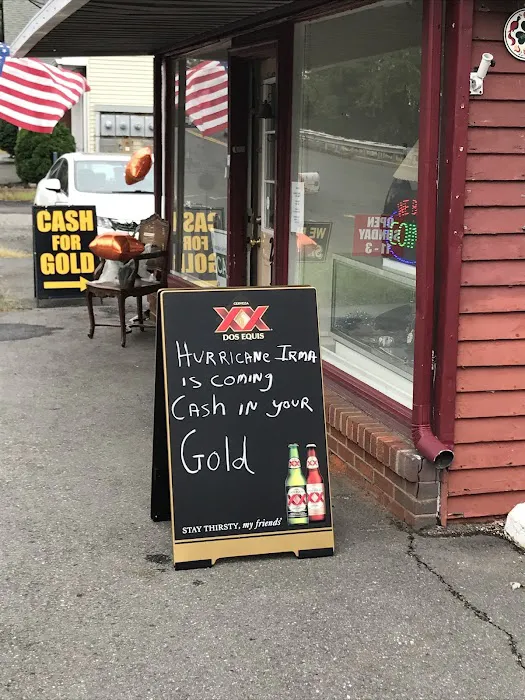 CASH
FOR
GOLD
CERVEZA
XX
DOS EQUIS
HURRICANE IRMA
is coming
Cash in your
Gold
XX
XX
STAY THIRSTY, my friends
CASH
FOR
GOLD
WE
OPEN
SUNDAY
11-3